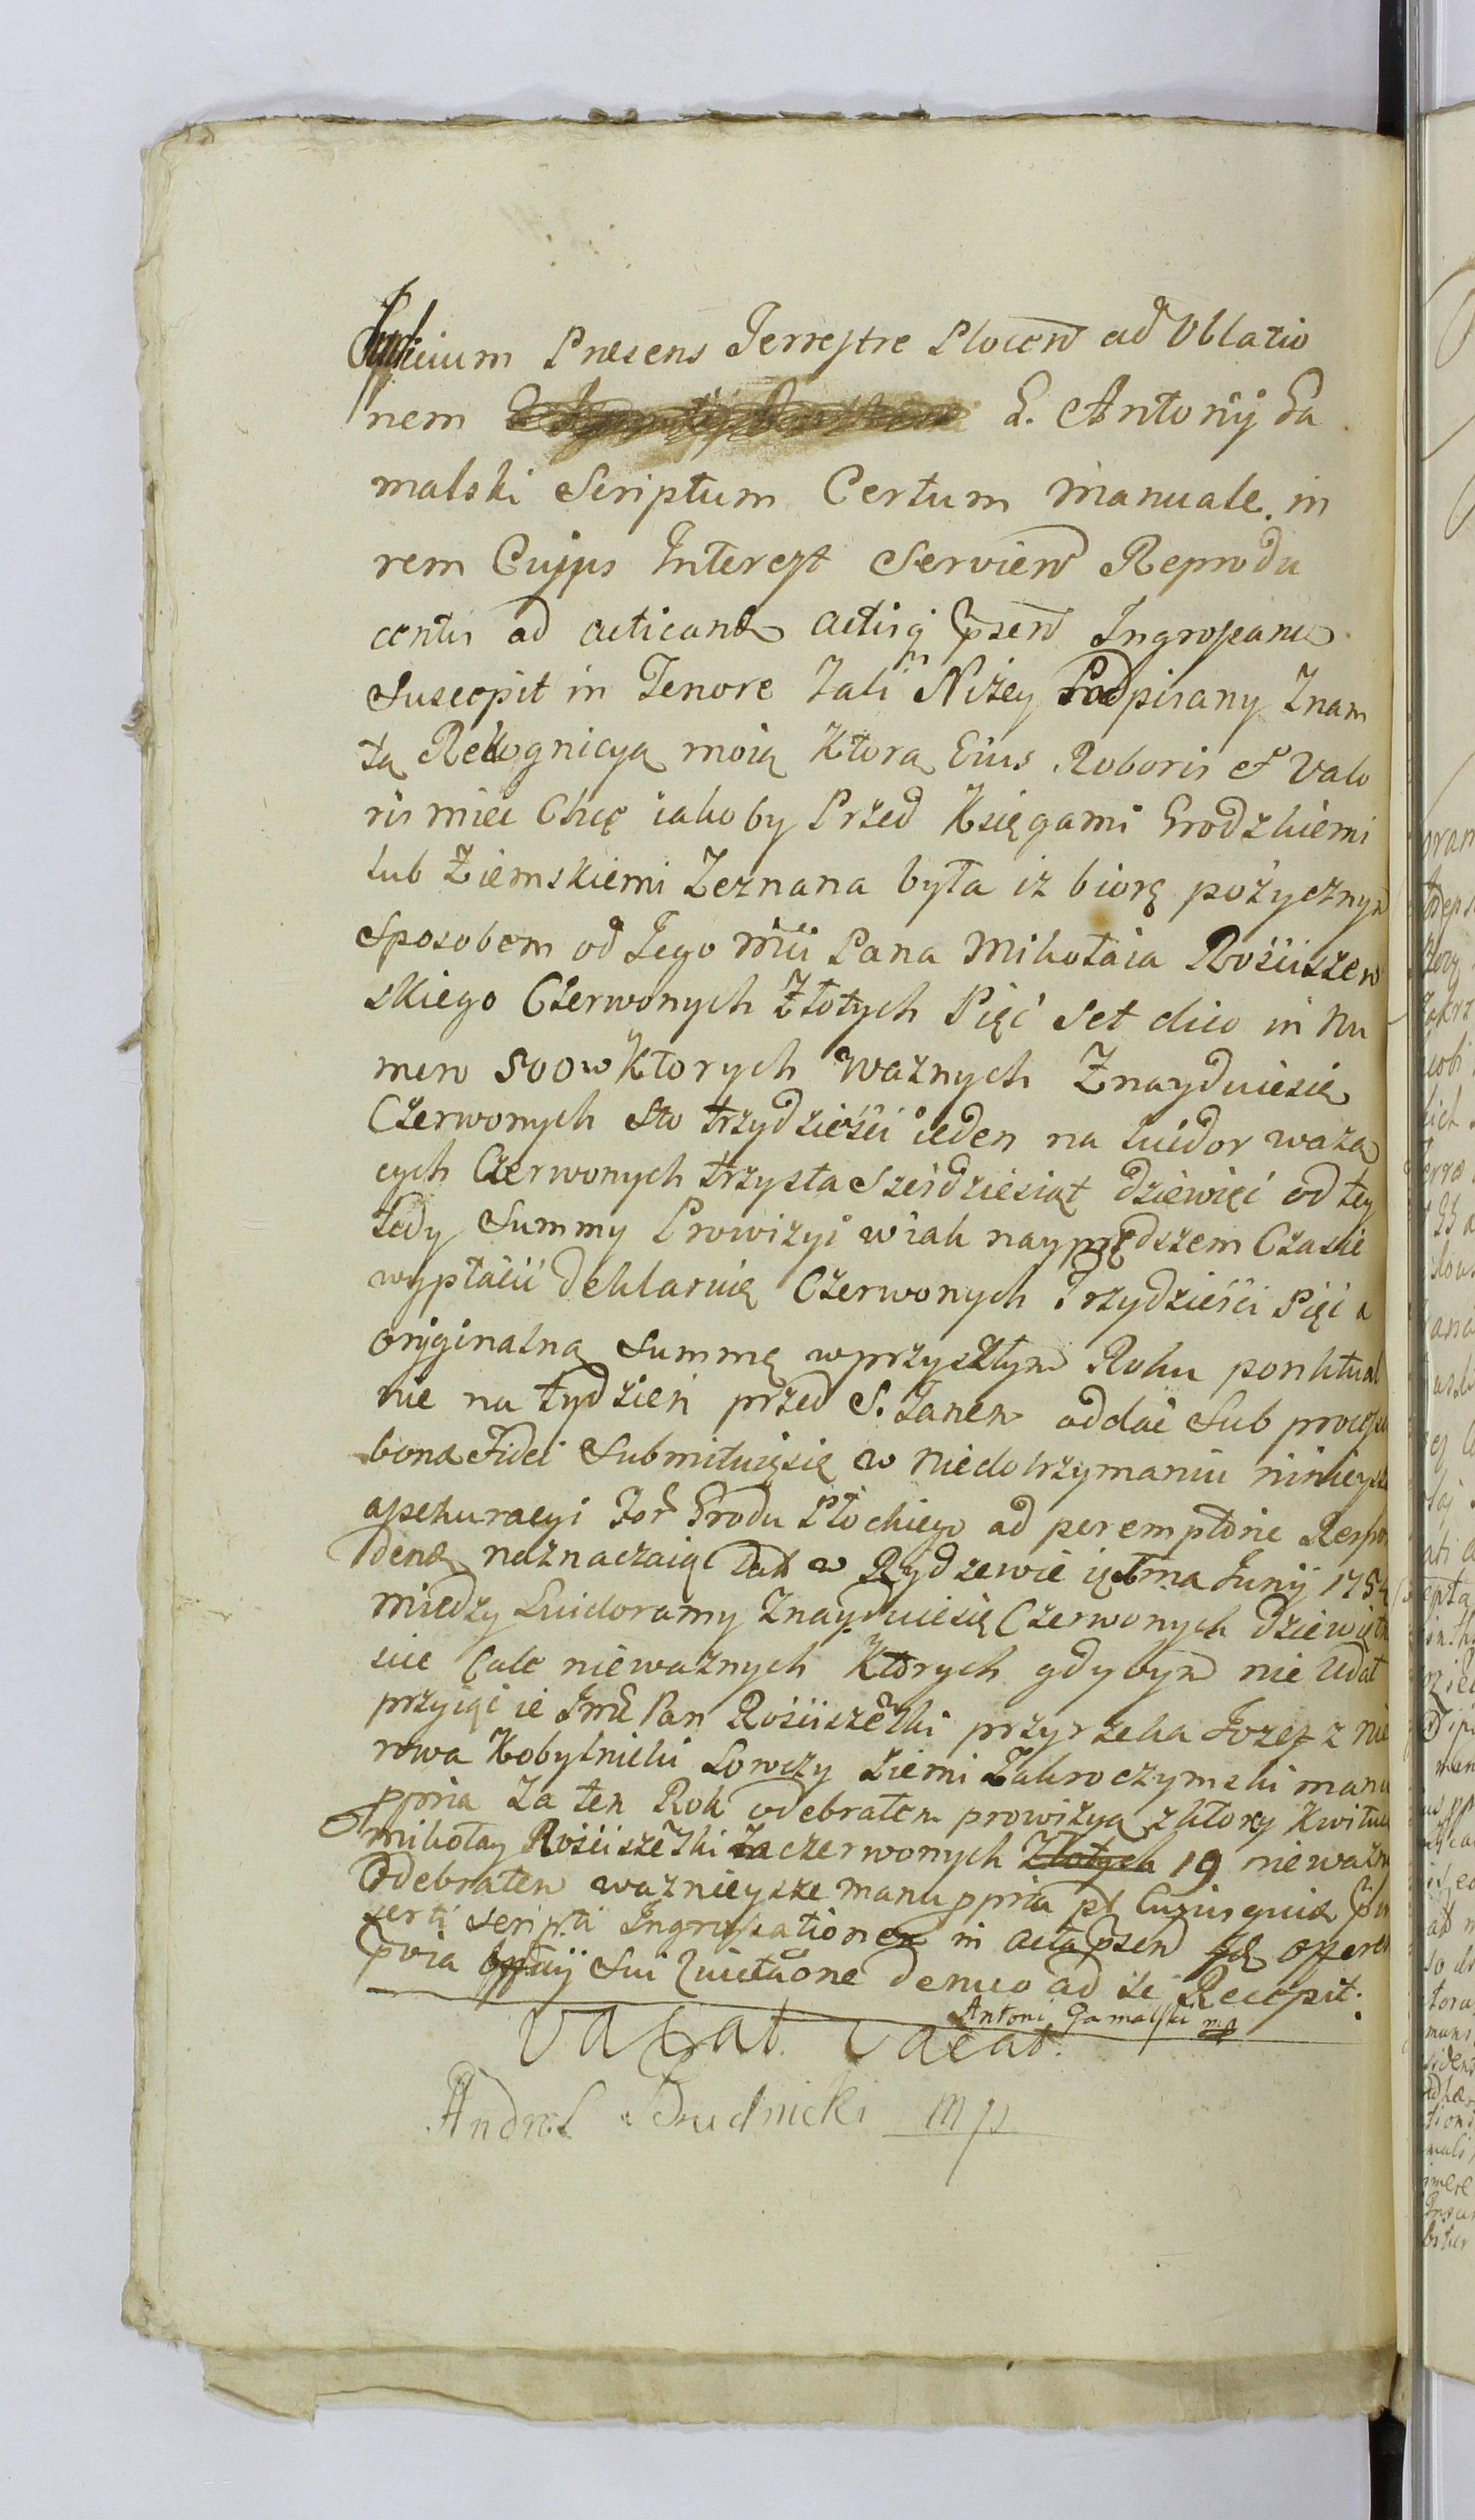 Judicium Præsens Terrestre Plocen ad Oblatio
nem G. Antonÿ Ga
malski Scriptum Certum manuale in
rem Cujus Interest Servien Reprodu
centis ad acticand actisq psen Ingrossand
Suscepit in Tenore tali Niżey Podpisany Znam
tą Rekognicyą moią Ktorą Eius Roboris et Valo
ris mieć Chcę iakoby Przed Księgami Grodzkiemi
lub Ziemskiemi Zeznana była iz biorę pożycznym
Sposobem od Jego Mći Pana Mikołaia Rościszew
skiego Czerwonych Złotych Pięć Set dico in Nu
mero 500 w Ktorych Waznych Znayduiesię
Czerwonych Sto trzydzieści ieden na luidor waza
cych Czerwonych trzysta Sześdziesiąt dziewięć od tey
tedy Summy Prowizyi w iak nayprędszem Czasie
wypłacić deklaruię Czerwonych Trzydzieści Pięć a
oryginalną Summę w przyszłym Roku ponktual
nie na tydzień przed S. Janem oddać Sub
bonæ Fidei Submituięsię w Niedotrzymaniu
assekuracyi For Grodu Płockiego ad peremptorie Respon
dend naznaczaiąc Dat w Rydzewie Junÿ 1754
między Luidoramy Znayduiesię Czerwonych
scie Cale nieważnych Ktorych gdybym nie Udał
przyiąć ie Jmć Pan Rościszewski przyrzeka Jozef z Nie
rowa Kobylnicki Łowczy Ziemi Zakroczymski manu
ppria Za ten Rok odebrałem prowizyą z ktorey Kwituię
Mikołay Rościszewski za czerwonych Złotych 19 nieważn
Odebrałem ważnieysze manu ppria pt Cuiusquid
serti scripti Ingrossationem in acta psen Idem offerens
Sui Quietaōne denuo ad se Recepit.
Antoni Gamalski mp
Vacat Vacat
Andreas Brudnicki mp